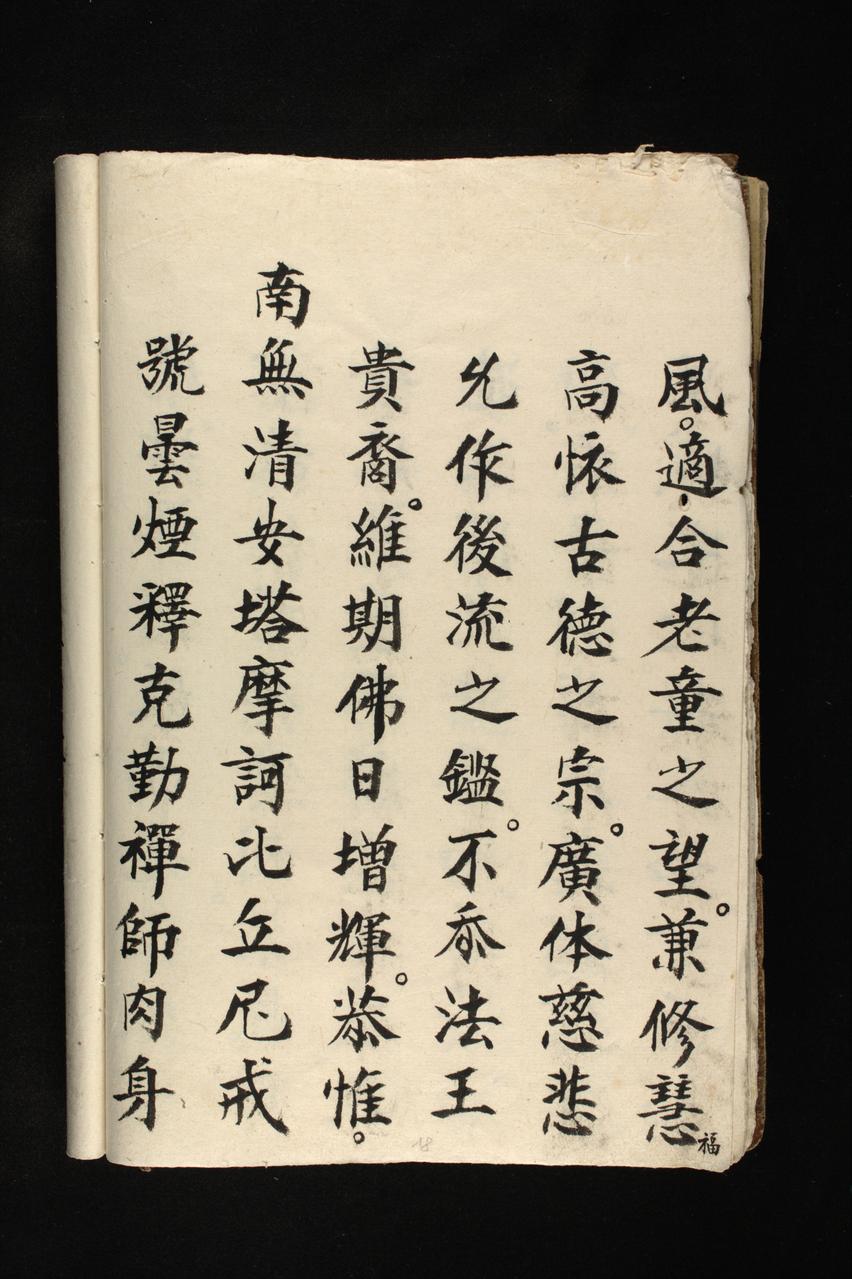 風。適合老童之望。兼修慧福
高懐古德之宗。廣体慈悲
允作後流之鑑。不忝法王
貴裔。維期佛日増輝。恭惟。
南無清安塔摩訶比丘尼戒
號曇煙釋克勤禪師肉身
18